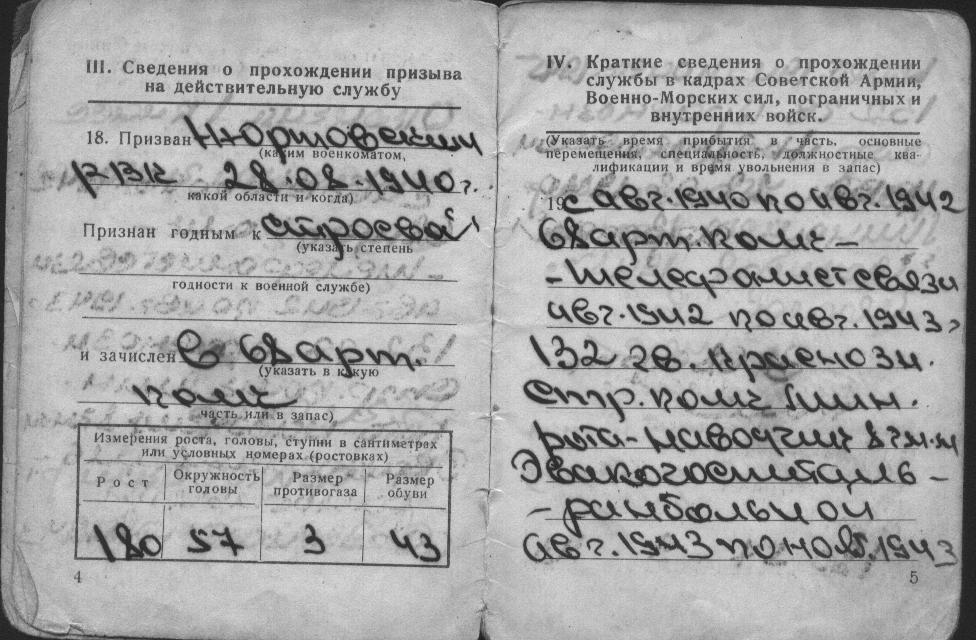 III. Сведения о прохождении призыва
на действительную службу
18. Призван
(каким военкоматом,
РВК 28.08.1940 г.
какой области и когда)
Признан годным к строевой
(указать степень
годности к военной службе)
и зачислен в 68 арт.
(указать в какую
полк
часть или в запас)
Измерения роста, головы, ступни в сантиметрах
или условных номерах (ростовках)
Рост Окружность головы Размер противогаза Размер обуви
180 57 3 43
4
IV. Краткие сведения о прохождении
службы в кадрах Советской Армии,
Военно-Морских сил, пограничных и
внутренних войск.
(Указать время прибытия в часть, основные
перемещения, специальность, должностные ква-
лификации и время увольнения в запас)
19 с авг. 1940 по авг. 1942
68 арт. полк –
– телефонист связи
авг. 1942 по авг. 1943 г
132 гв. Краснозн.
стр. полк мин.
рота – наводчик
Эвакогоспиталь –
– ранбольной
авг. 1943 по нояб. 1943
5